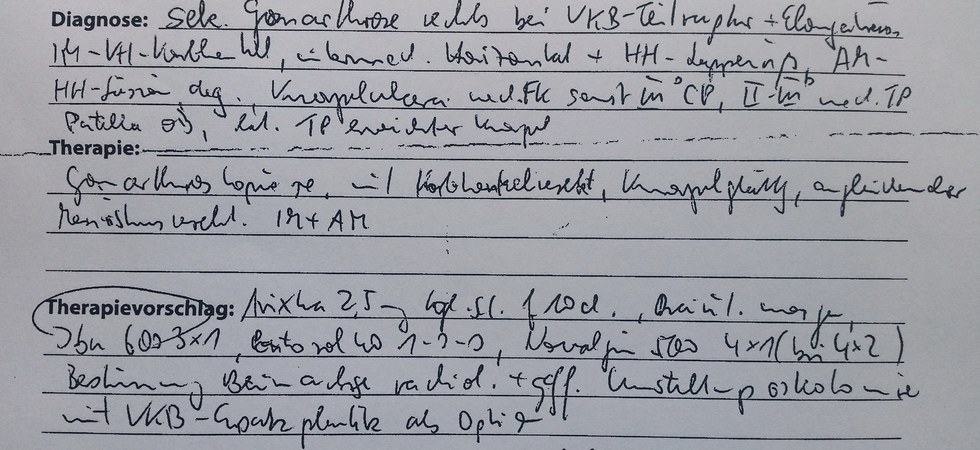 Diagnose: sek. Gonarthrose rechts bei VKB-Teilruptur + Elongation,
IM-VH-Korbhenkel, intermed. Horizontal + HH-Lappenrip, AM-
HH-Läsion deg., Knorpelulcera med. FK sonst III° CP, II-III b med. TP
Patella o.B., lat. TP erweichter Knorpel
Therapie:
Gonarthroskopie re, mit Korbhenkelresekt, Knorpelglättg, angleichender
Meniskusresekt. IM + AM
Therapievorschlag: Arixtra 2,5 mg tgl. s.c. f 10 d., Drain 1. morgen,
Ibu 600 3x1, Pantozol 40 1-0-0, Novalgin 500 4x1 (bis 4x2)
Bestimmung Beinachse radiol. + ggff. Umstellungsosteotomie
mit VKB-Ersatzplastik als Option